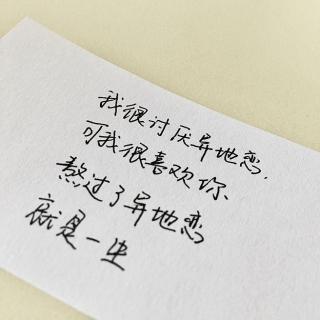 我很讨厌异地恋,
可我很喜欢你、
熬过了异地恋
就是一生